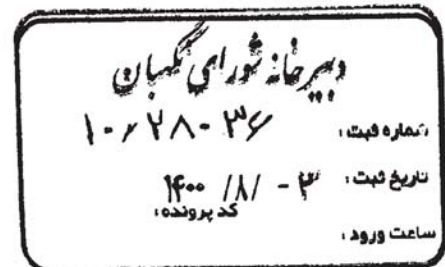 دبیرخانه شورای نگهبان
شماره ثبت :
تاریخ ثبت : ۳ - /۸/ ۱۴۰۰
کد پرونده :
ساعت ورود :